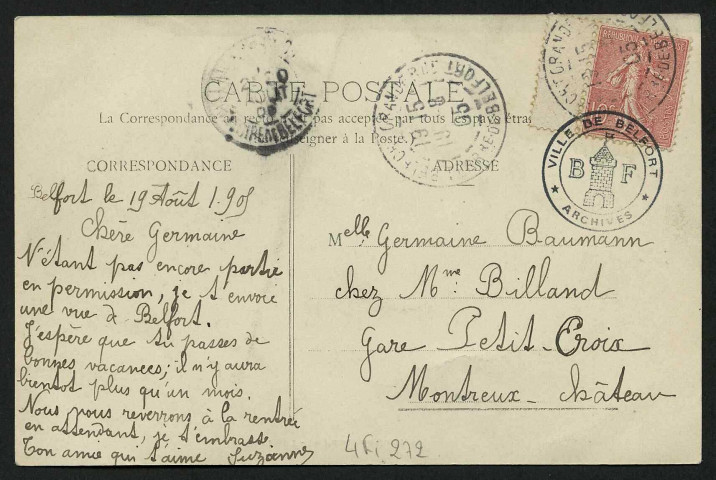 CARTE POSTALE
La Correspondance au recto n'est pas acceptée par tous les pays étra
seigner à la Poste.
CORRESPONDANCE
ADRESSE
VILLE DE BELFORT
B F
ARCHIVES
Belfort le 19 Août 1.905
Chère Germaine
N'étant pas encore partie
en permission, je t'envoie
une vue de Belfort.
J'espère que tu passes de
bonnes vacances; il n'y aura
bientot plus qu'un mois.
Nous nous reverrons à la rentrée
en attendant, je t'embrasse
Ton amie qui t'aime Suzanne
Melle Germaine Baumann
chez Mme Billand
Gare Petit-Croix
Montreux-Château
4Fi 272